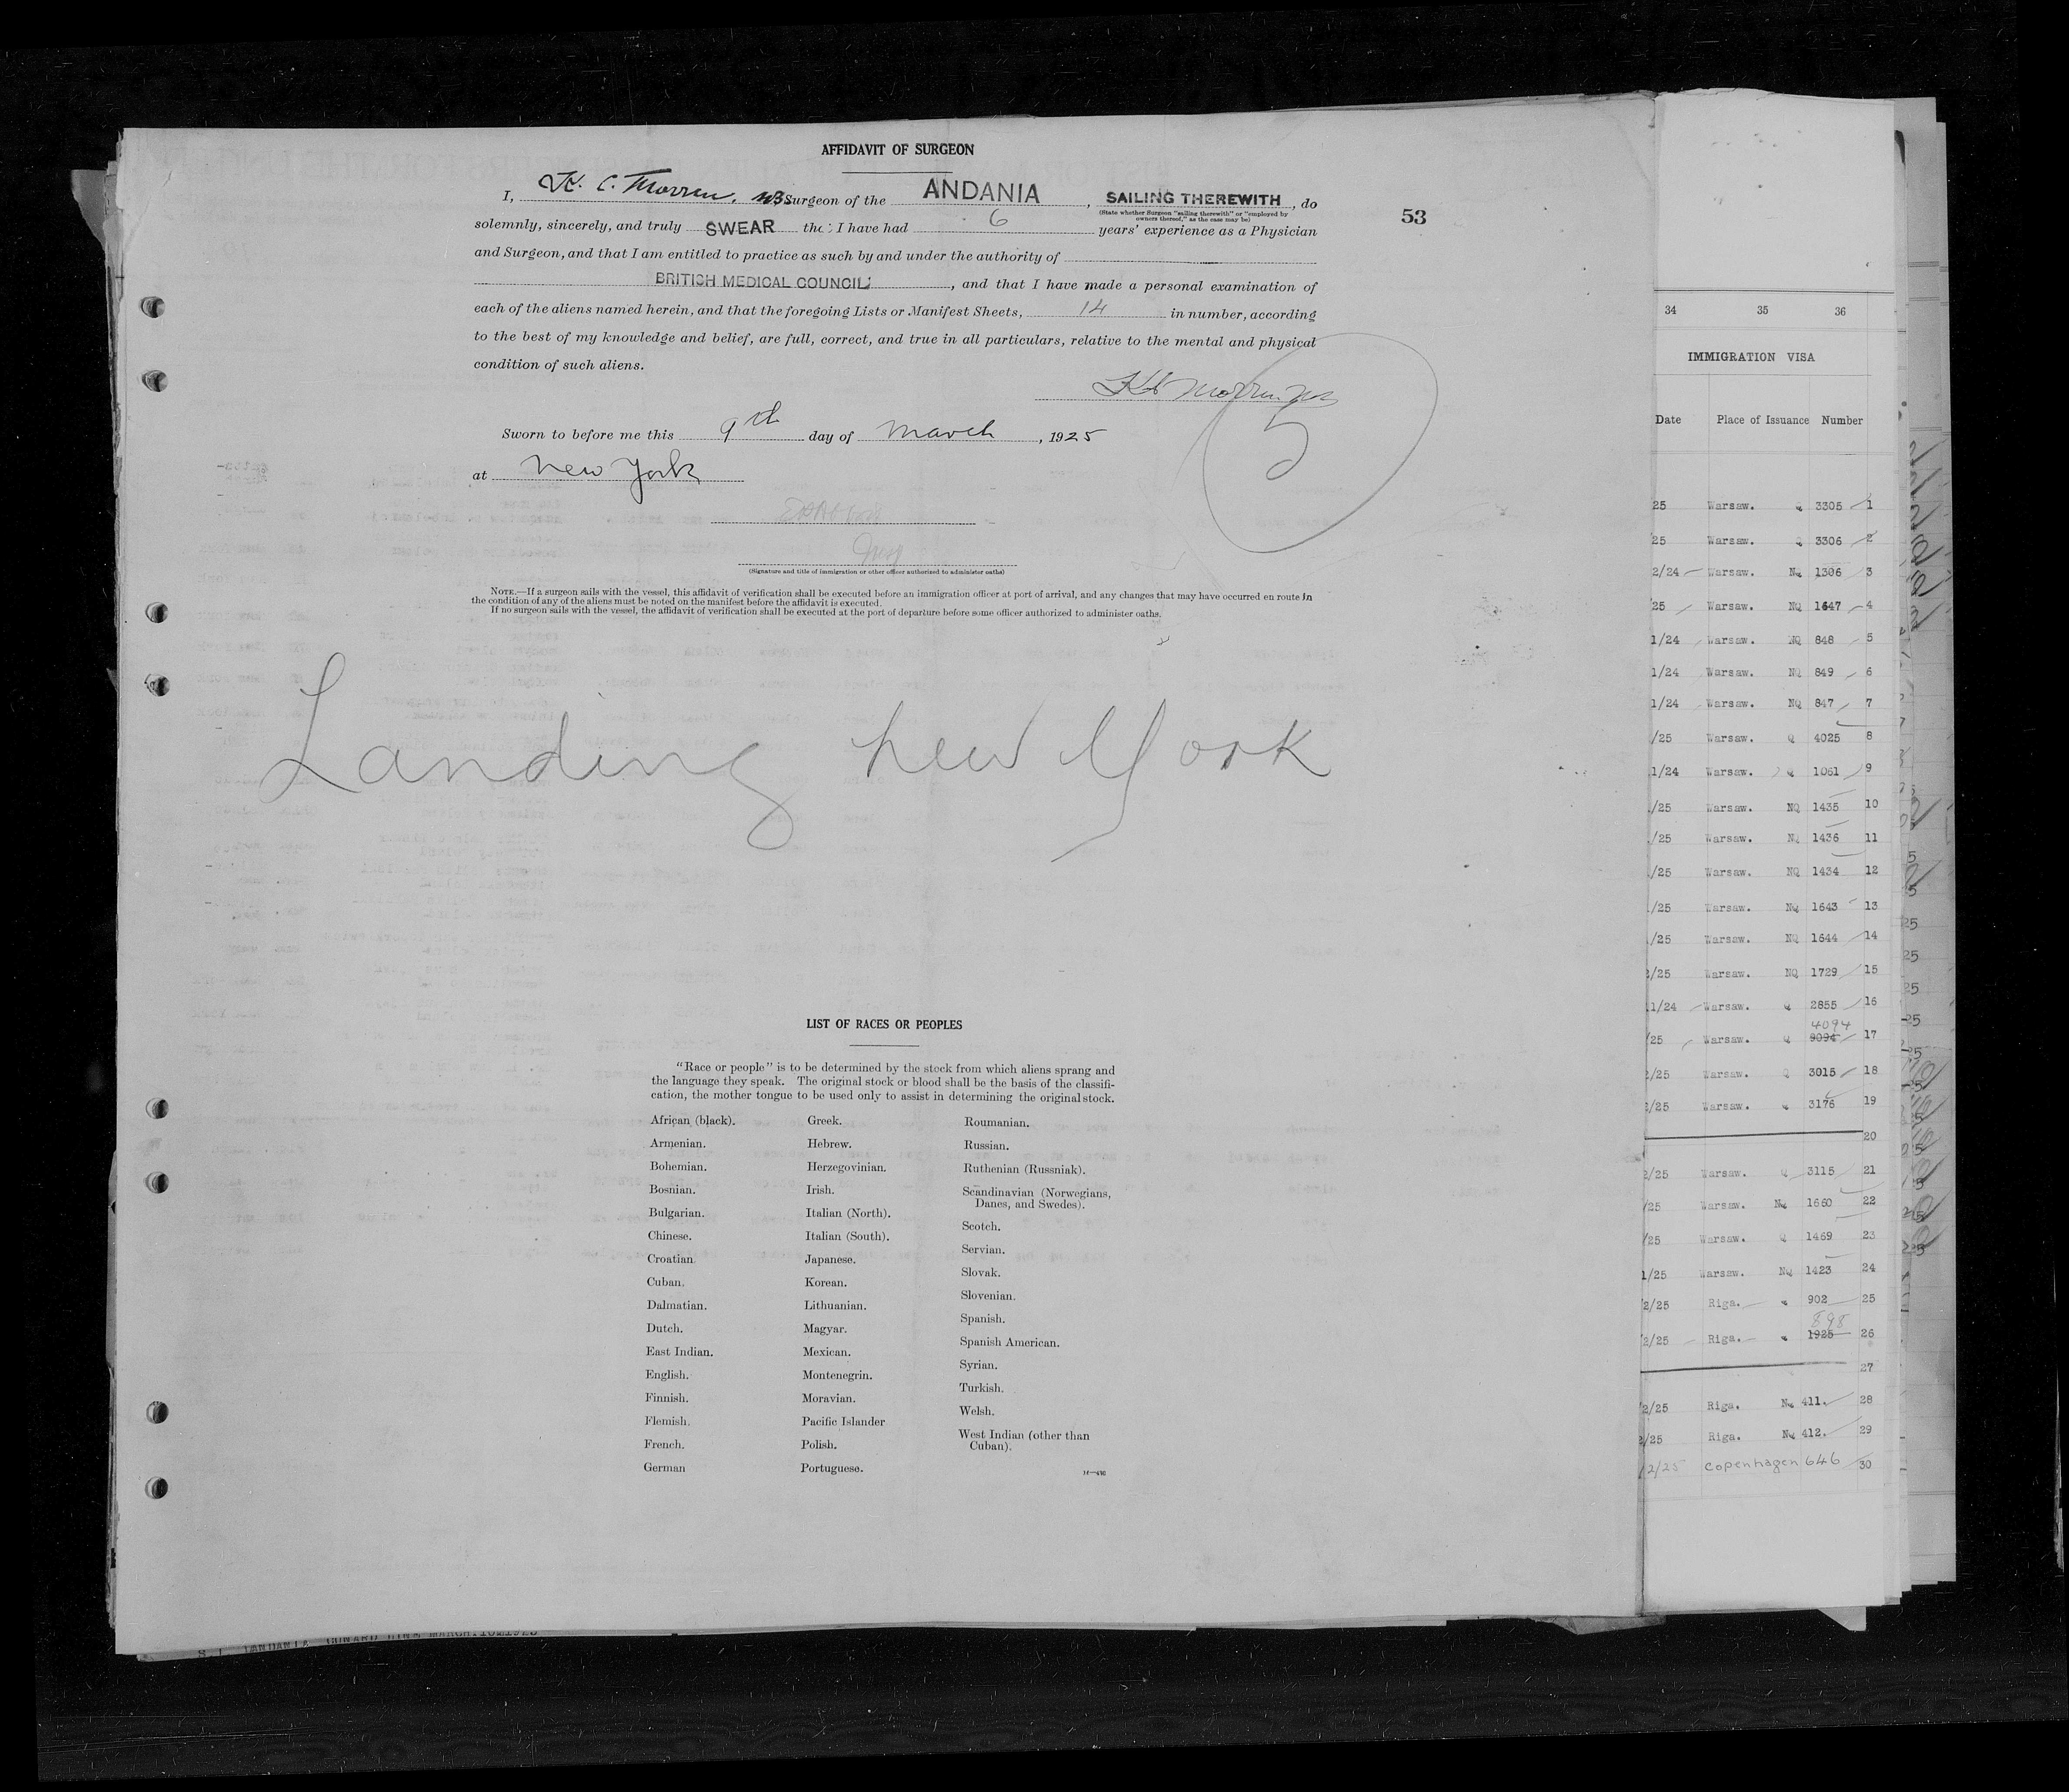 AFFIDAVIT OF SURGEON
I, K. C. Morren, MB Surgeon of the ANDANIA, SAILING THEREWITH, do
(State whether Surgeon "sailing therewith" or "employed by owners thereof," as the case may be)
53
solemnly, sincerely, and truly SWEAR that I have had 6 years' experience as a Physician
and Surgeon, and that I am entitled to practice as such by and under the authority of
BRITISH MEDICAL COUNCIL, and that I have made a personal examination of
each of the aliens named herein, and that the foregoing Lists or Manifest Sheets, 14 in number, according
to the best of my knowledge and belief, are full, correct, and true in all particulars, relative to the mental and physical
condition of such aliens.
5
Sworn to before me this 9th day of March, 1925
at New York
(Signature and title of immigration or other officer authorized to administer oaths)
NOTE.—If a surgeon sails with the vessel, this affidavit of verification shall be executed before an immigration officer at port of arrival, and any changes that may have occurred en route in
the condition of any of the aliens must be noted on the manifest before the affidavit is executed.
If no surgeon sails with the vessel, the affidavit of verification shall be executed at the port of departure before some officer authorized to administer oaths.
Landing New York
LIST OF RACES OR PEOPLES
"Race or people" is to be determined by the stock from which aliens sprang and
the language they speak. The original stock or blood shall be the basis of the classifi-
cation, the mother tongue to be used only to assist in determining the original stock.
African (black).
Armenian.
Bohemian.
Bosnian.
Bulgarian.
Chinese.
Croatian.
Cuban.
Dalmatian.
Dutch.
East Indian.
English.
Finnish.
Flemish.
French.
German
Greek.
Hebrew.
Herzegovinian.
Irish.
Italian (North).
Italian (South).
Japanese.
Korean.
Lithuanian.
Magyar.
Mexican.
Montenegrin.
Moravian.
Pacific Islander
Polish.
Portuguese.
Roumanian.
Russian.
Ruthenian (Russniak).
Scandinavian (Norwegians,
Danes, and Swedes).
Scotch.
Servian.
Slovak.
Slovenian.
Spanish.
Spanish American.
Syrian.
Turkish.
Welsh.
West Indian (other than
Cuban).
34 35 36
IMMIGRATION VISA
Date Place of Issuance Number
25 Warsaw. Q 3305 1
25 Warsaw. Q 3306 2
2/24 Warsaw. NQ 1306 3
25 Warsaw. NQ 1647 4
1/24 Warsaw. NQ 848 5
1/24 Warsaw. NQ 849 6
1/24 Warsaw. NQ 847 7
/25 Warsaw. Q 4025 8
1/24 Warsaw. Q 1061 9
/25 Warsaw. NQ 1435 10
/25 Warsaw. NQ 1436 11
/25 Warsaw. NQ 1434 12
/25 Warsaw. NQ 1643 13
/25 Warsaw. NQ 1644 14
2/25 Warsaw. NQ 1729 15
11/24 Warsaw. Q 2855 16
4094
/25 Warsaw. Q 9094 17
2/25 Warsaw. Q 3015 18
2/25 Warsaw. Q 3176 19
20
2/25 Warsaw. Q 3115 21
/25 Warsaw. NQ 1660 22
/25 Warsaw. Q 1469 23
1/25 Warsaw. NQ 1423 24
2/25 Riga. Q 902 25
898
2/25 Riga. Q 1925 26
27
2/25 Riga. NQ 411. 28
2/25 Riga. NQ 412. 29
2/25 Copenhagen 646 30